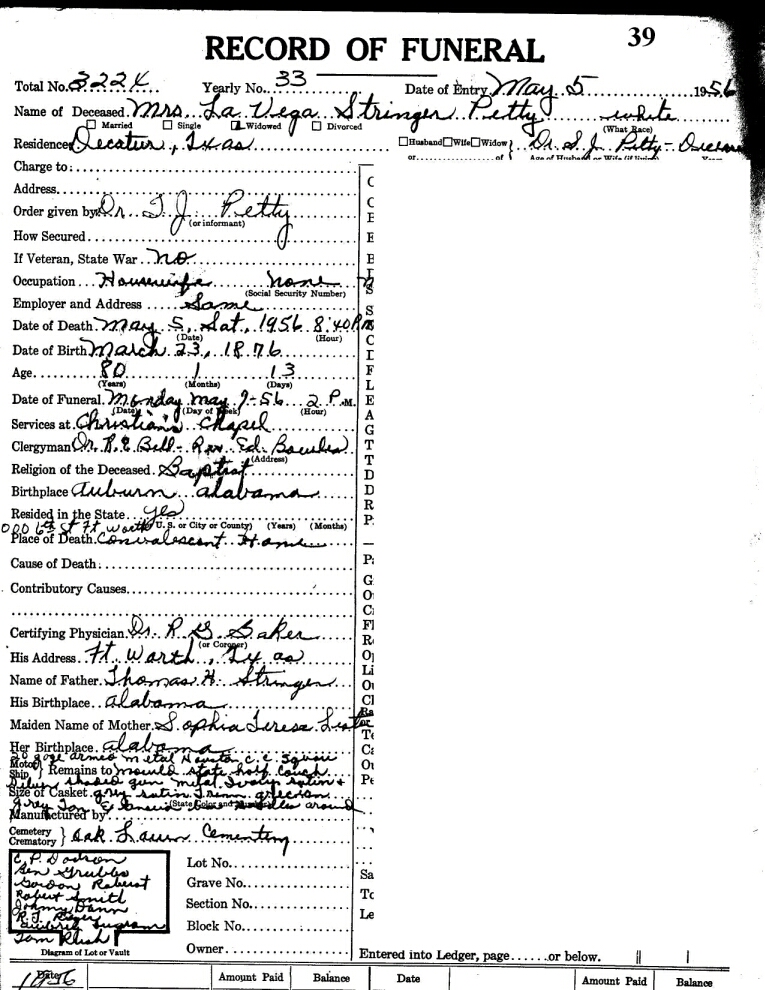 39
RECORD OF FUNERAL
Total No. 3224 Yearly No. 33 Date of Entry May 5 1956
Name of Deceased Mrs. La Vega Stringer Petty white
Married Single Widowed Divorced (What Race)
Residence Decatur, Texas Husband Wife Widow } Dr. S. J. Petty-
or of Age of Husband or Wife (if living)
Charge to:
Address
Order given by Dr. T. J. Petty
(or informant)
How Secured
If Veteran, State War no
Occupation Housewife none
(Social Security Number)
Employer and Address Same
Date of Death May 5, Sat., 1956 8:40 P.M
(Date) (Hour)
Date of Birth March 23, 1876
Age 80 1 13
(Years) (Months) (Days)
Date of Funeral Monday May 7-56 2 P.M.
(Date) (Day of Week) (Hour)
Services at Christian's Chapel
Clergyman Dr. R.E. Bell - Rev. Ed.
(Address)
Religion of the Deceased Baptist
Birthplace Auburn Alabama
Resided in the State yes
6th St Ft Worth U. S. or City or County) (Years) (Months)
Place of Death Convalescent Home
Cause of Death:
Contributory Causes
Certifying Physician Dr. R. G. Baker
(or Coroner)
His Address Ft. Worth, Tx as
Name of Father Thomas H. Stringer
His Birthplace Alabama
Maiden Name of Mother Sophia Teresa
Her Birthplace Alabama
20 gage armco metal Houston C. C. Square
Motor Ship } Remains to mould state half couch
Silver shaded gun metal
Size of Casket grey satin
(State Color and Number) around
Manufactured by
Cemetery Crematory } Oak Lawn Cementery
Ben Grubbs
Gordon
Robert Smith
Johnny Dann
R. J.
Tom
Lot No.
Grave No.
Section No.
Block No.
Owner
Diagram of Lot or Vault
Entered into Ledger, page......or below.
1956 Amount Paid Balance Date Amount Paid Balance